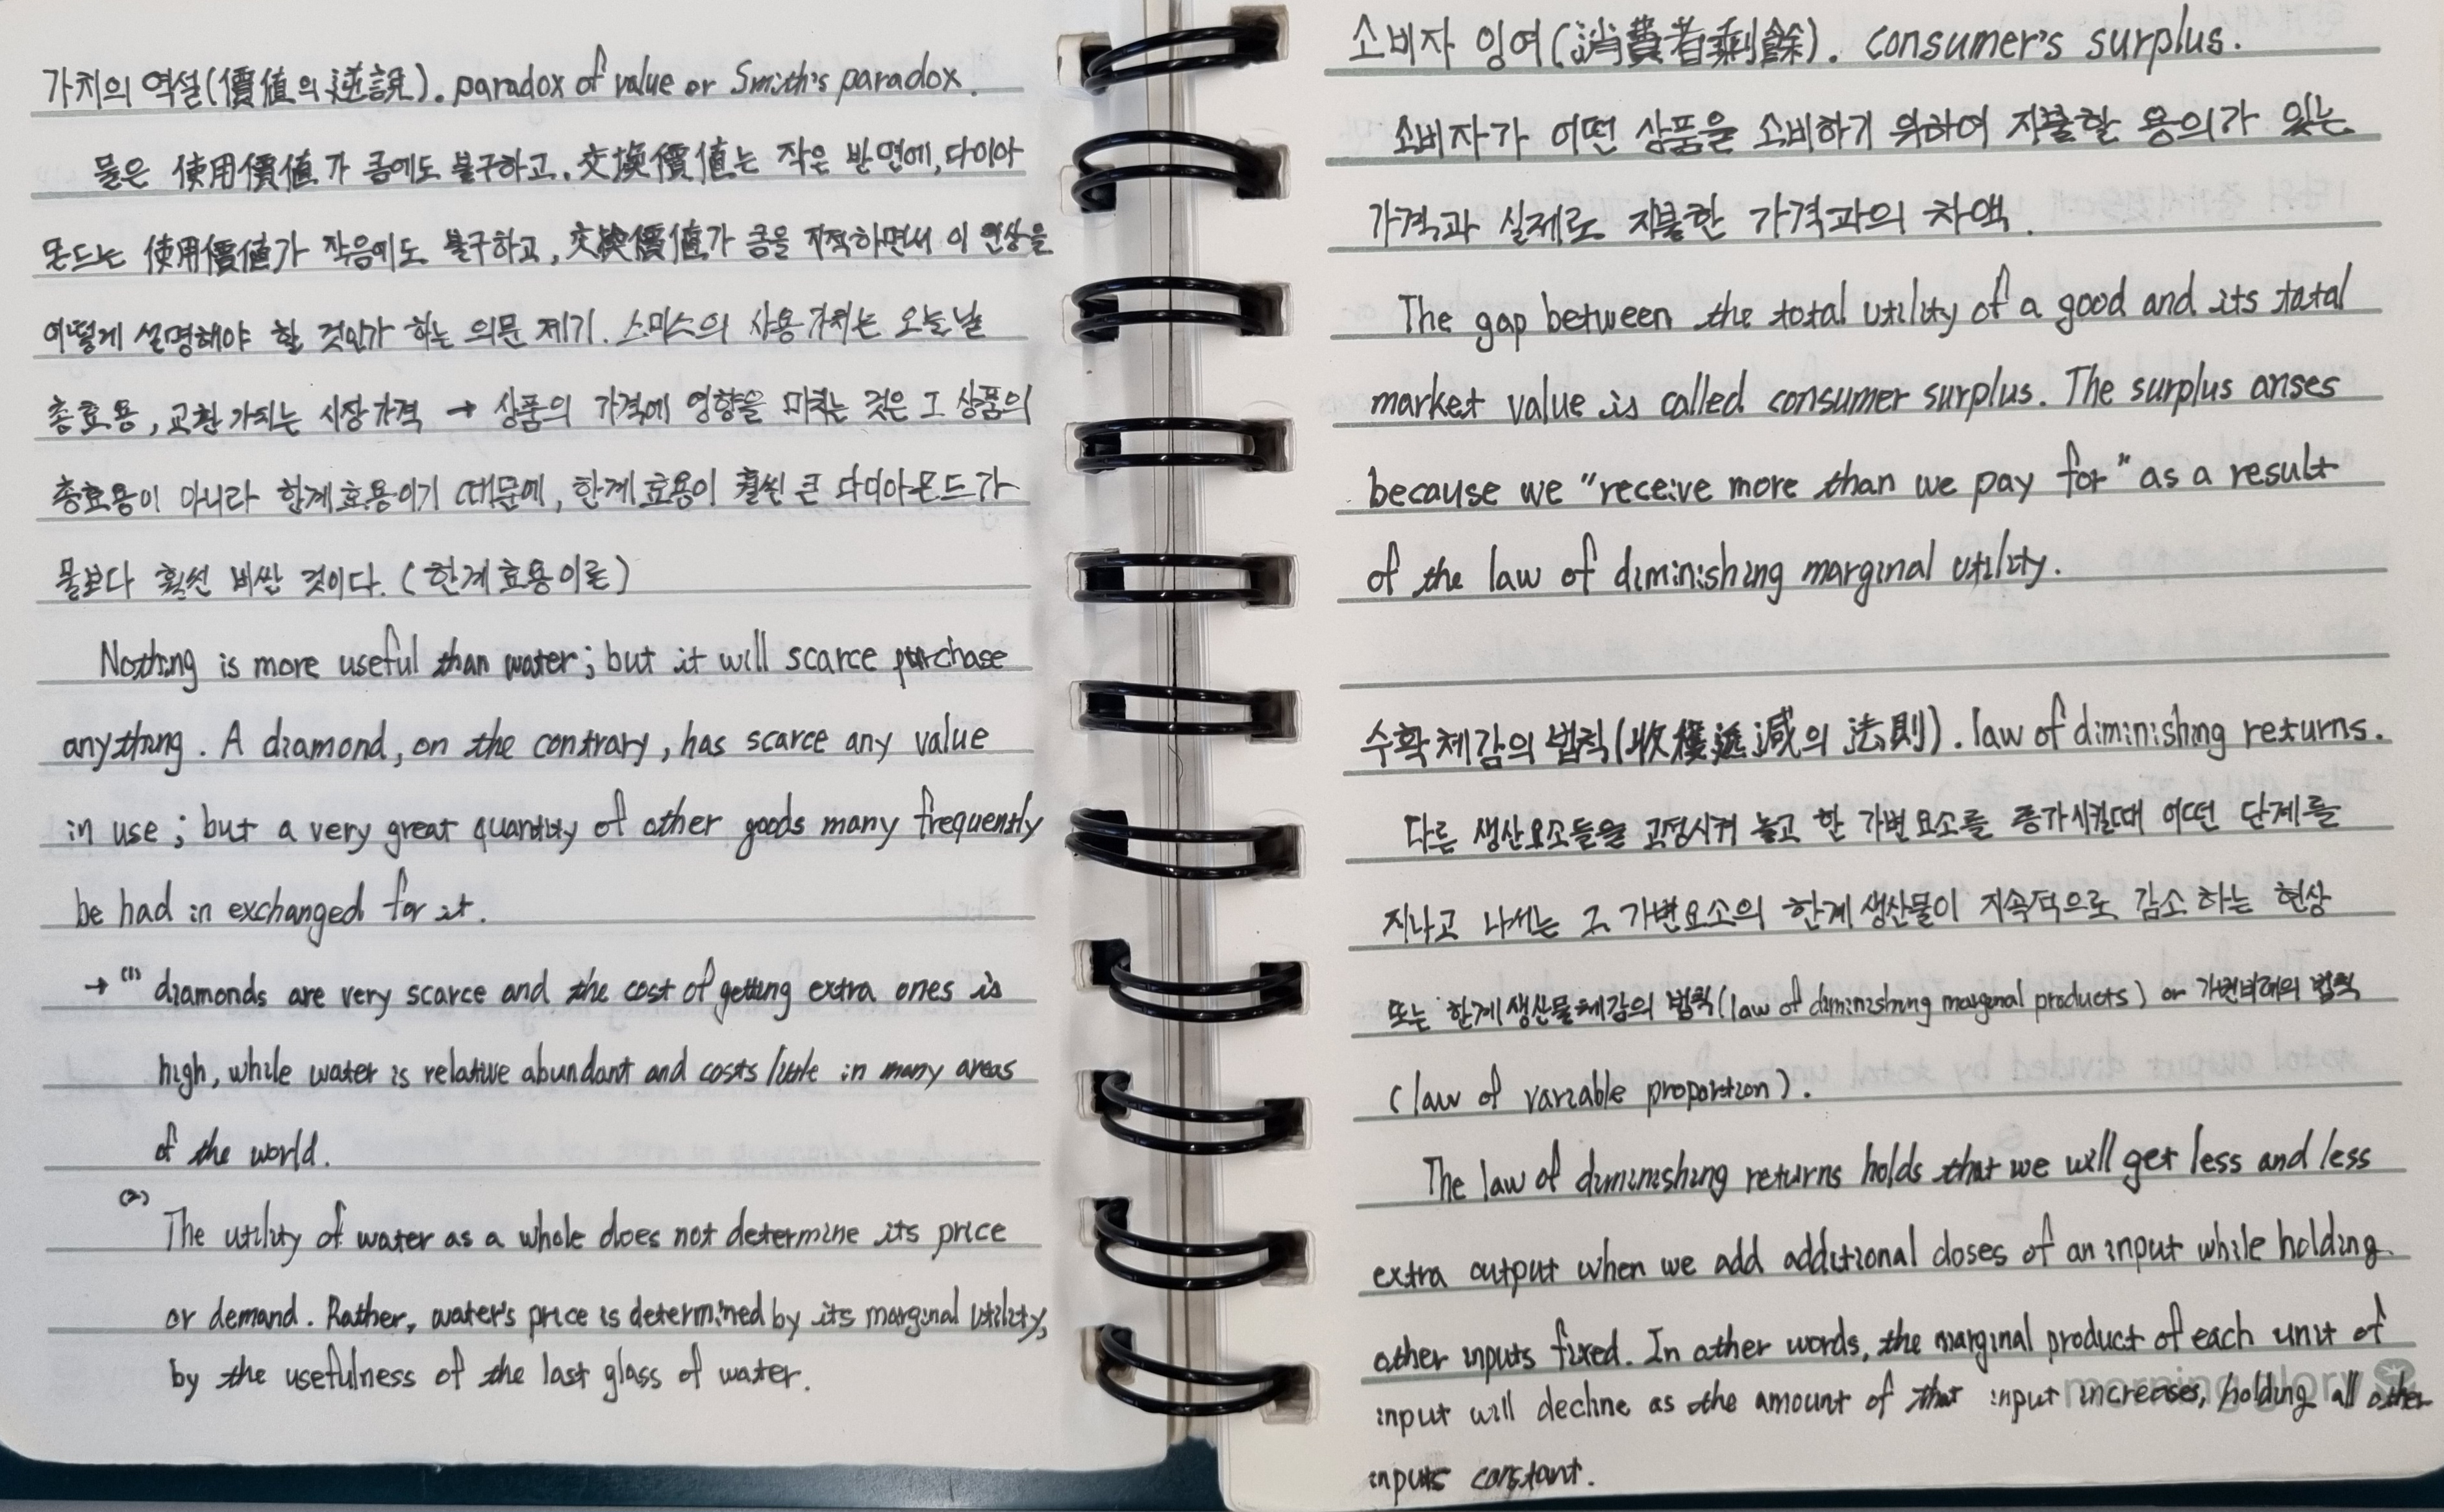 가치의 역설(價値의 逆說). paradox of value or Smith's paradox.
물은 使用價値가 큼에도 불구하고, 交換價値는 작은 반면에, 다이아
몬드는 使用價値가 작음에도 불구하고, 交換價値가 큼을 지적하면서 이 현상을
어떻게 설명해야 할 것인가 하는 의문 제기. 스미스의 사용가치는 오늘날
총효용, 교환가치는 시장가격 → 상품의 가격에 영향을 미치는 것은 그 상품의
총효용이 아니라 한계효용이기 때문에, 한계효용이 훨씬 큰 다이아몬드가
물보다 훨씬 비싼 것이다. (한계효용이론)
Nothing is more useful than water; but it will scarce purchase
anything. A diamond, on the contrary, has scarce any value
in use; but a very great quantity of other goods many frequently
be had in exchanged for it.
→ (1) diamonds are very scarce and the cost of getting extra ones is
high, while water is relative abundant and costs little in many areas
of the world.
(2) The utility of water as a whole does not determine its price
or demand. Rather, water's price is determined by its marginal utility,
by the usefulness of the last glass of water.
소비자 잉여(消費者剩餘). consumer's surplus.
소비자가 어떤 상품을 소비하기 위하여 지불할 용의가 있는
가격과 실제로 지불한 가격과의 차액.
The gap between the total utility of a good and its total
market value is called consumer surplus. The surplus arises
because we "receive more than we pay for" as a result
of the law of diminishing marginal utility.
수확체감의 법칙(收穫遞減의 法則). law of diminishing returns.
다른 생산요소들을 고정시켜 놓고 한 가변요소를 증가시킬때 어떤 단계를
지나고 나서는 그 가변요소의 한계생산물이 지속적으로 감소하는 현상
또는 한계생산물체감의 법칙(law of diminishing marginal products) or 가변비례의 법칙
(law of variable proportion).
The law of diminishing returns holds that we will get less and less
extra output when we add additional doses of an input while holding
other inputs fixed. In other words, the marginal product of each unit of
input will decline as the amount of that input increases, holding all other
inputs constant.
morning glory